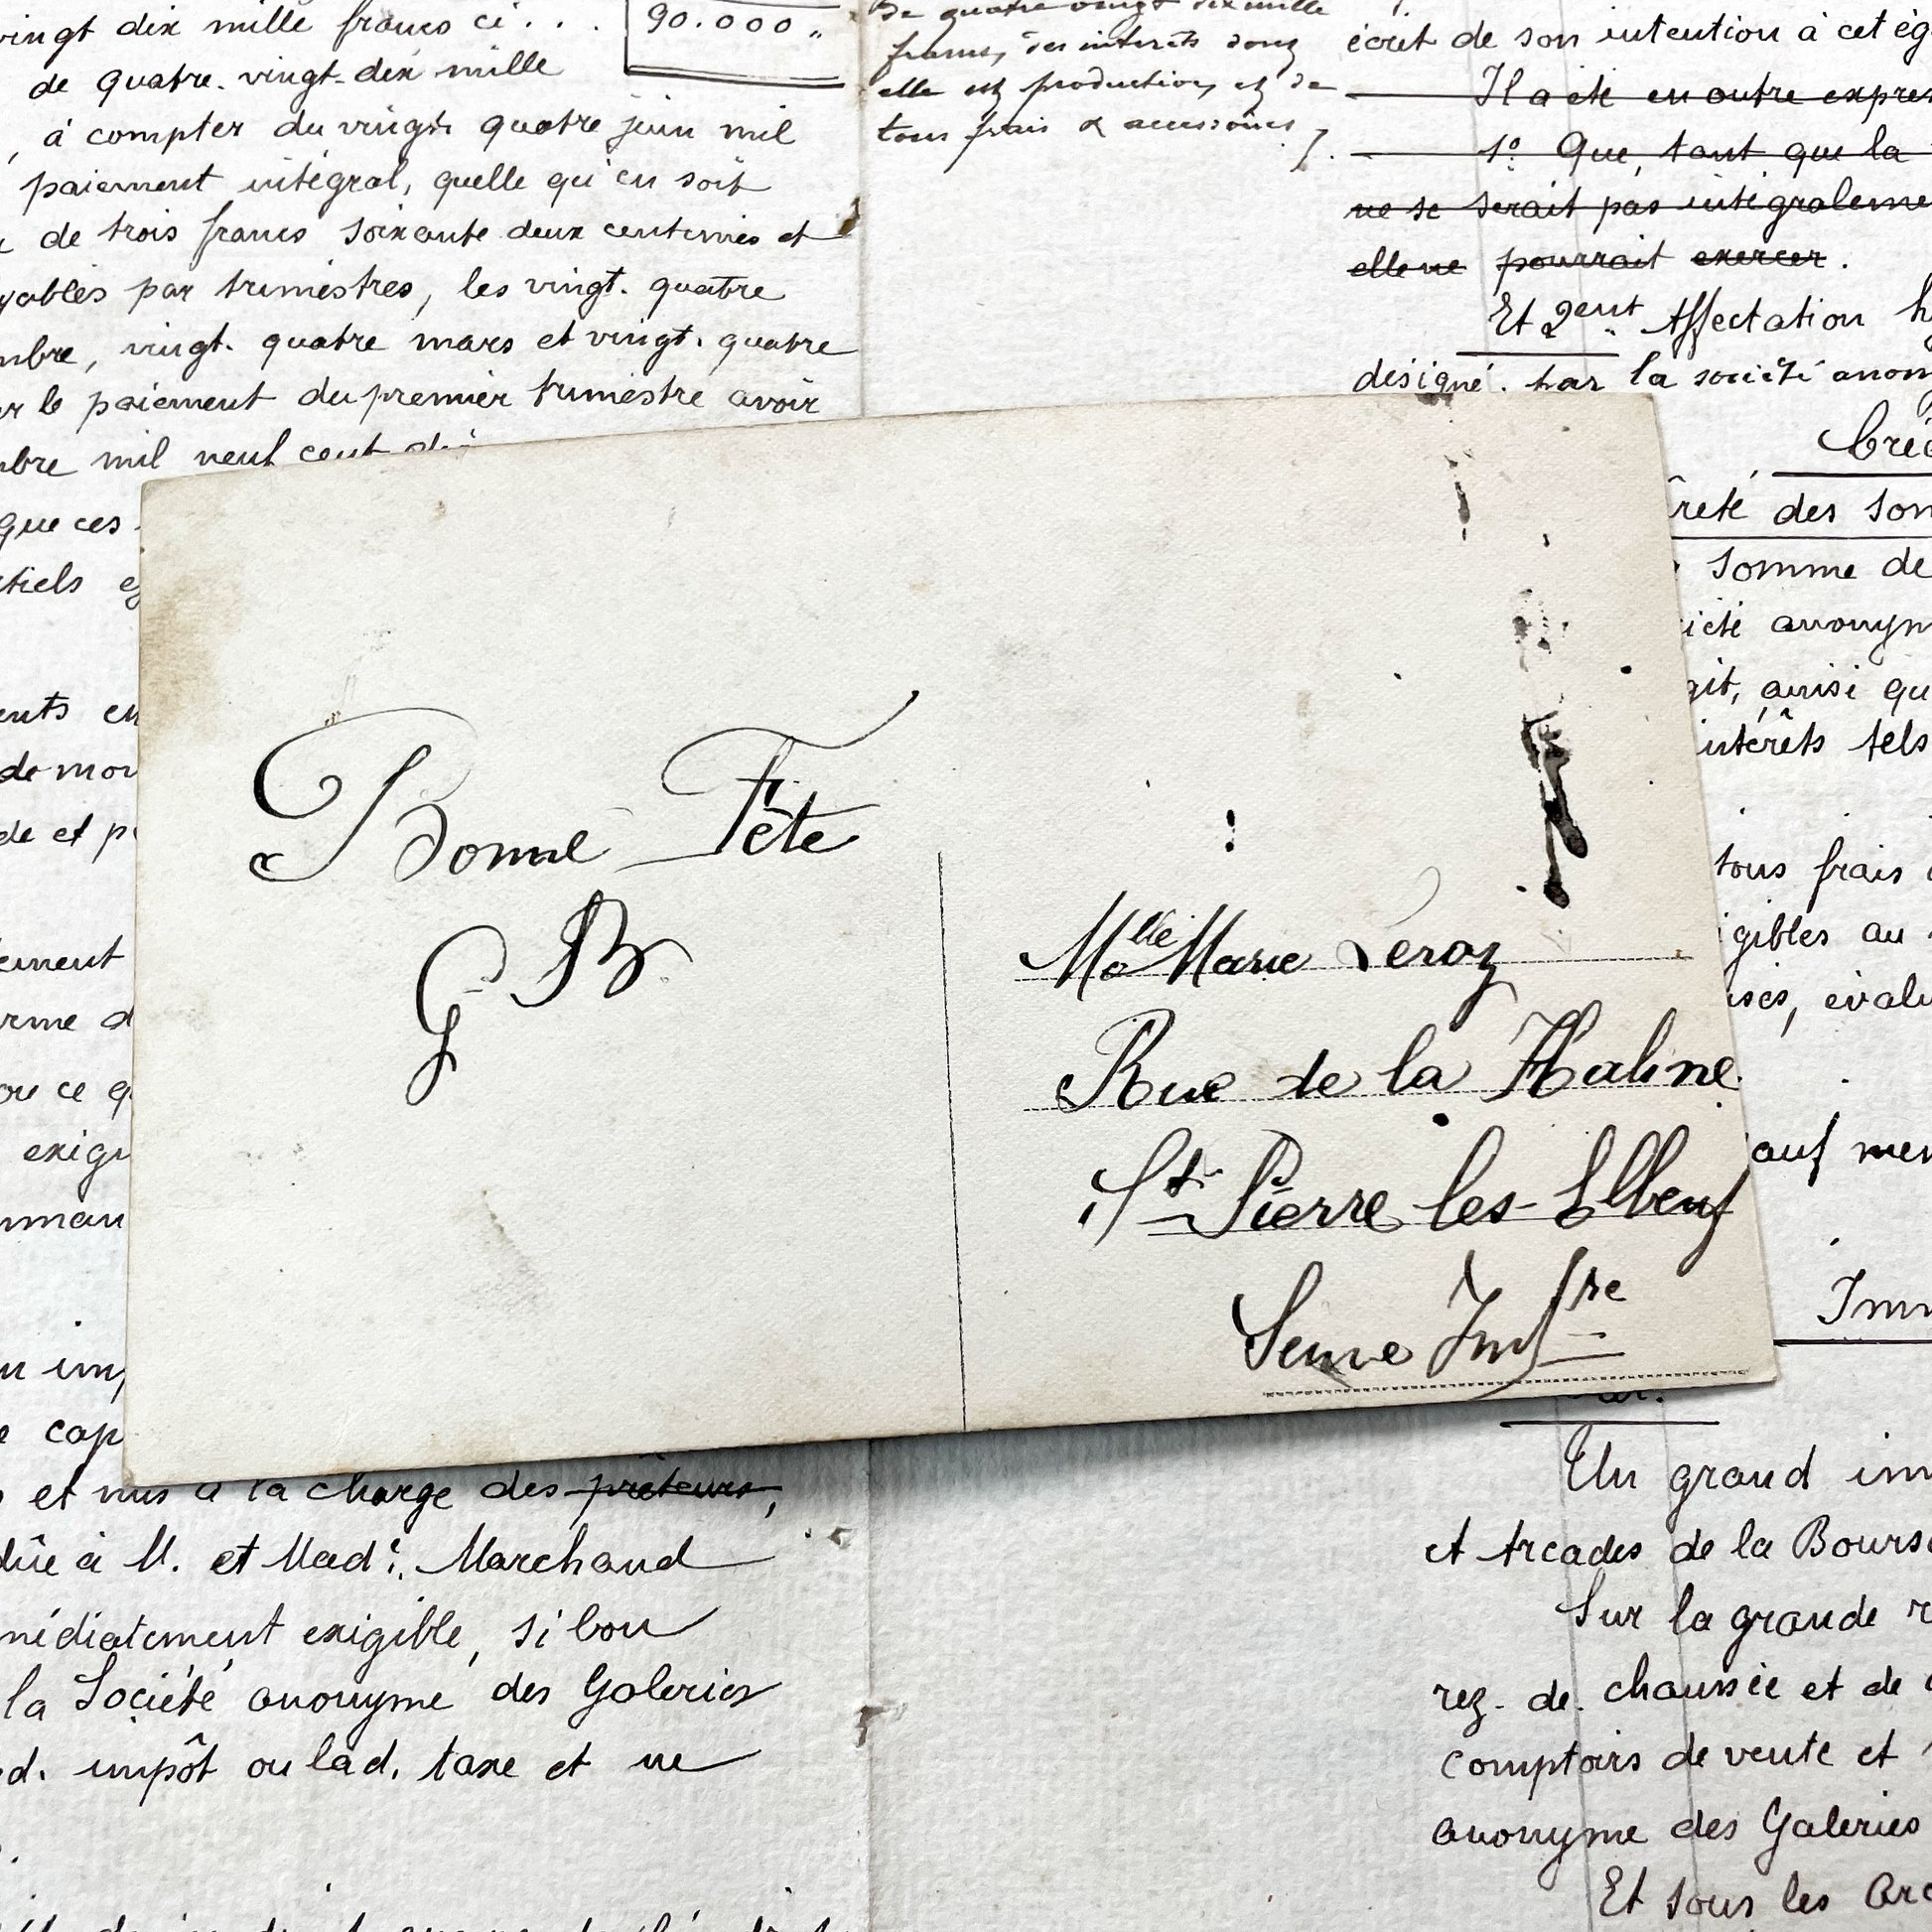 vingt dix mille francs ci . . .
90.000 "
de quatre-vingt-dix mille
, à compter du vingt quatre juin mil
paiement intégral, quelle qu'en soit
de trois francs soixante deux centimes et
yables par trimestres, les vingt-quatre
mbre, vingt-quatre mars et vingt-quatre
le paiement du premier trimestre avoir
mbre mil neuf cent
que ces
tiels
ents en
de mon
de et p
ement
rme d
ou ce q
exigi
mman
cap
et mis à la charge des prêteurs,
dûe à M. et Made. Marchand
médiatement exigible, si bon
la Société anonyme des Galeries
d. impôt ou lad. taxe et ne
De quatre vingt dix mille
francs, des intérêts dont
elle est production, et de
tous frais & accessoires /.
écrit de son intention à cet ég
Il a été en outre expres
1º Que, tant que la
ne se serait pas intégraleme
elle ne pourrait exercer.
Et 2ent Affectation h
désigné par la société anon
Cré
reté des som
somme de
iété anonym
git, ainsi qu
intérêts tels
tous frais
igibles au
ses, évalu
auf men
Imm
Un grand im
et Arcades de la Bours
Sur la grande r
rez-de-chaussée et de
comptoirs de vente et
anonyme des Galeries
Et sous les Arc
Bonne Fête
G B
Melle Marie Leroy
Rue de la Haline
St Pierre les-Elbeuf
Seine Infre